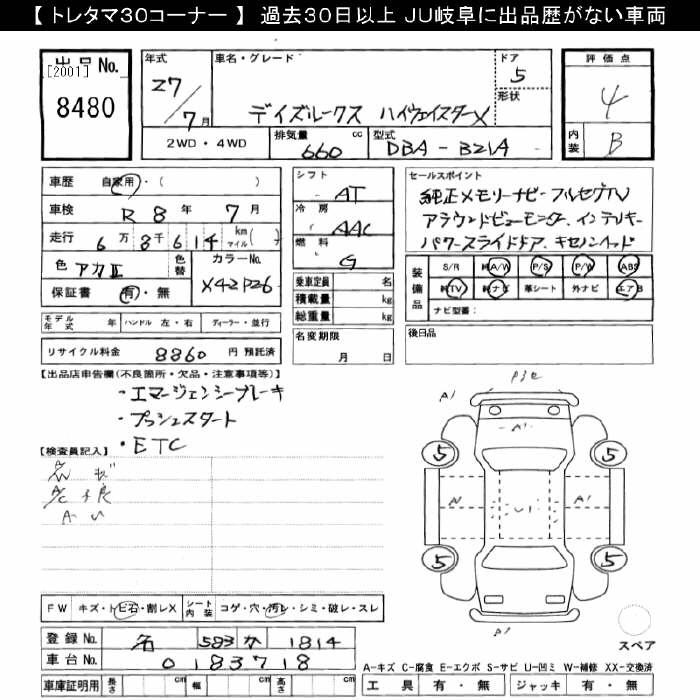 【 トレタマ30コーナー 】 過去30日以上 JU岐阜に出品歴がない車両
出品 No.
[2001]
8480
年式
27/7月
車名・グレード
デイズルークス ハイウェイスターX
ドア
5
形状
2WD・4WD
排気量
660
cc
型式
DBA-B21A
評価点
4
内装
B
車歴
自家用・( )
車検
R 8 年 7 月
走行
6万8千614 km マイル( )
色
アカⅡ
色替
カラーNo.
X42P26
保証書
有・無
シフト
AT
冷房
AAC
燃料
G
乗車定員 名
積載量 kg
総重量 kg
セールスポイント
純正メモリーナビ・フルセグTV
アラウンドビューモニター、インテリキー
パワースライドドア、キセノンヘッド
装備品
S/R 純A/W P/S P/W ABS
純TV 純ナビ 革シート 外ナビ エアB
ナビ型番:
モデル年式 年 ハンドル 左・右 ディーラー・並行
名変期限
月 日
後日品
リサイクル料金 8860 円 預託済
【出品店申告欄(不良箇所・欠品・注意事項等)】
・エマージェンシーブレーキ
・プッシュスタート
・ETC
【検査員記入】
A1
A1
5
5
A1
5
5
スペア
FW キズ・トビ石・割レX シート内装 コゲ・穴・汚レ・シミ・破レ・スレ
登録 No. 名 583 か 1814
車台 No. 0183718
車庫証明用 長さ cm 幅 cm 高さ cm
A-キズ C-腐食 E-エクボ S-サビ U-凹ミ W-補修 XX-交換済
工具 有・無 ジャッキ 有・無